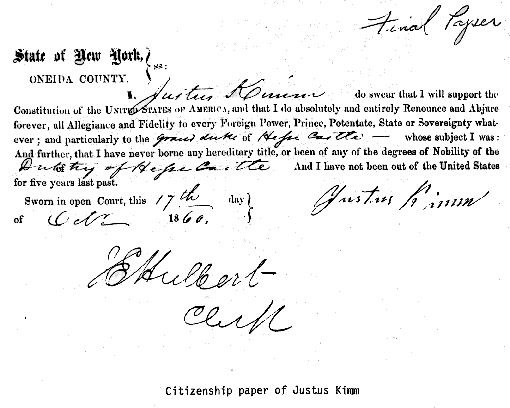 Final Paper
State of New York,
ONEIDA COUNTY. ss:
I, Justus Kimm do swear that I will support the
Constitution of the UNITED STATES OF AMERICA, and that I do absolutely and entirely Renounce and Abjure
forever, all Allegiance and Fidelity to every Foreign Power, Prince, Potentate, State or Sovereignty what-
ever; and particularly to the grand duke of Hesse Castle — whose subject I was:
And further, that I have never borne any hereditary title, or been of any of the degrees of Nobility of the
Duketry of Hesse Castle And I have not been out of the United States
for five years last past.
Sworn in open Court, this 17th day
of 1860. Justus Kimm
Hulbert
Clerk
Citizenship paper of Justus Kimm